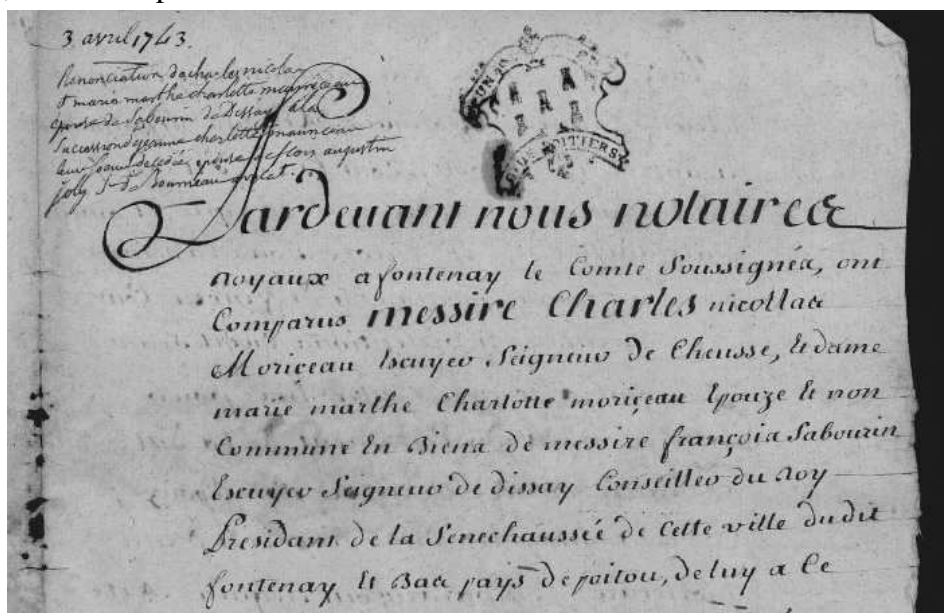 3 avril 1743.
Renonciation de charles nicolas
et marie marthe charlotte moriceau
epouse de Sabourin de Dissay a la
Succession de jeanne charlotte moriceau
leur soeur decedée epouse de flois augustin
joly Sr de Boumeau avocat.
UN SO
DEUX
POITIERS
Pardevant nous notaires
Royaux a fontenay le Comte Soussignés, ont
Comparus messire Charles nicollas
Moriçeau Escuyer Seigneur de Cheusse, Et dame
marie marthe Charlotte moriçeau Epouze Et non
Commune En Biens de messire françois Sabourin
Escuyer Seigneur de dissay Conseiller du Roy
Presidant de la Senechaussée de Cette ville dudit
fontenay Et Bas pays de poitou, de luy a Ce